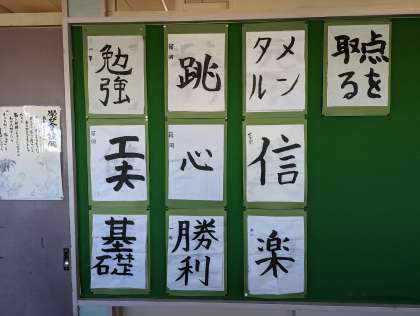 勉強
跳
メン
タル
点を
取る
工夫
心
信
基礎
勝利
楽